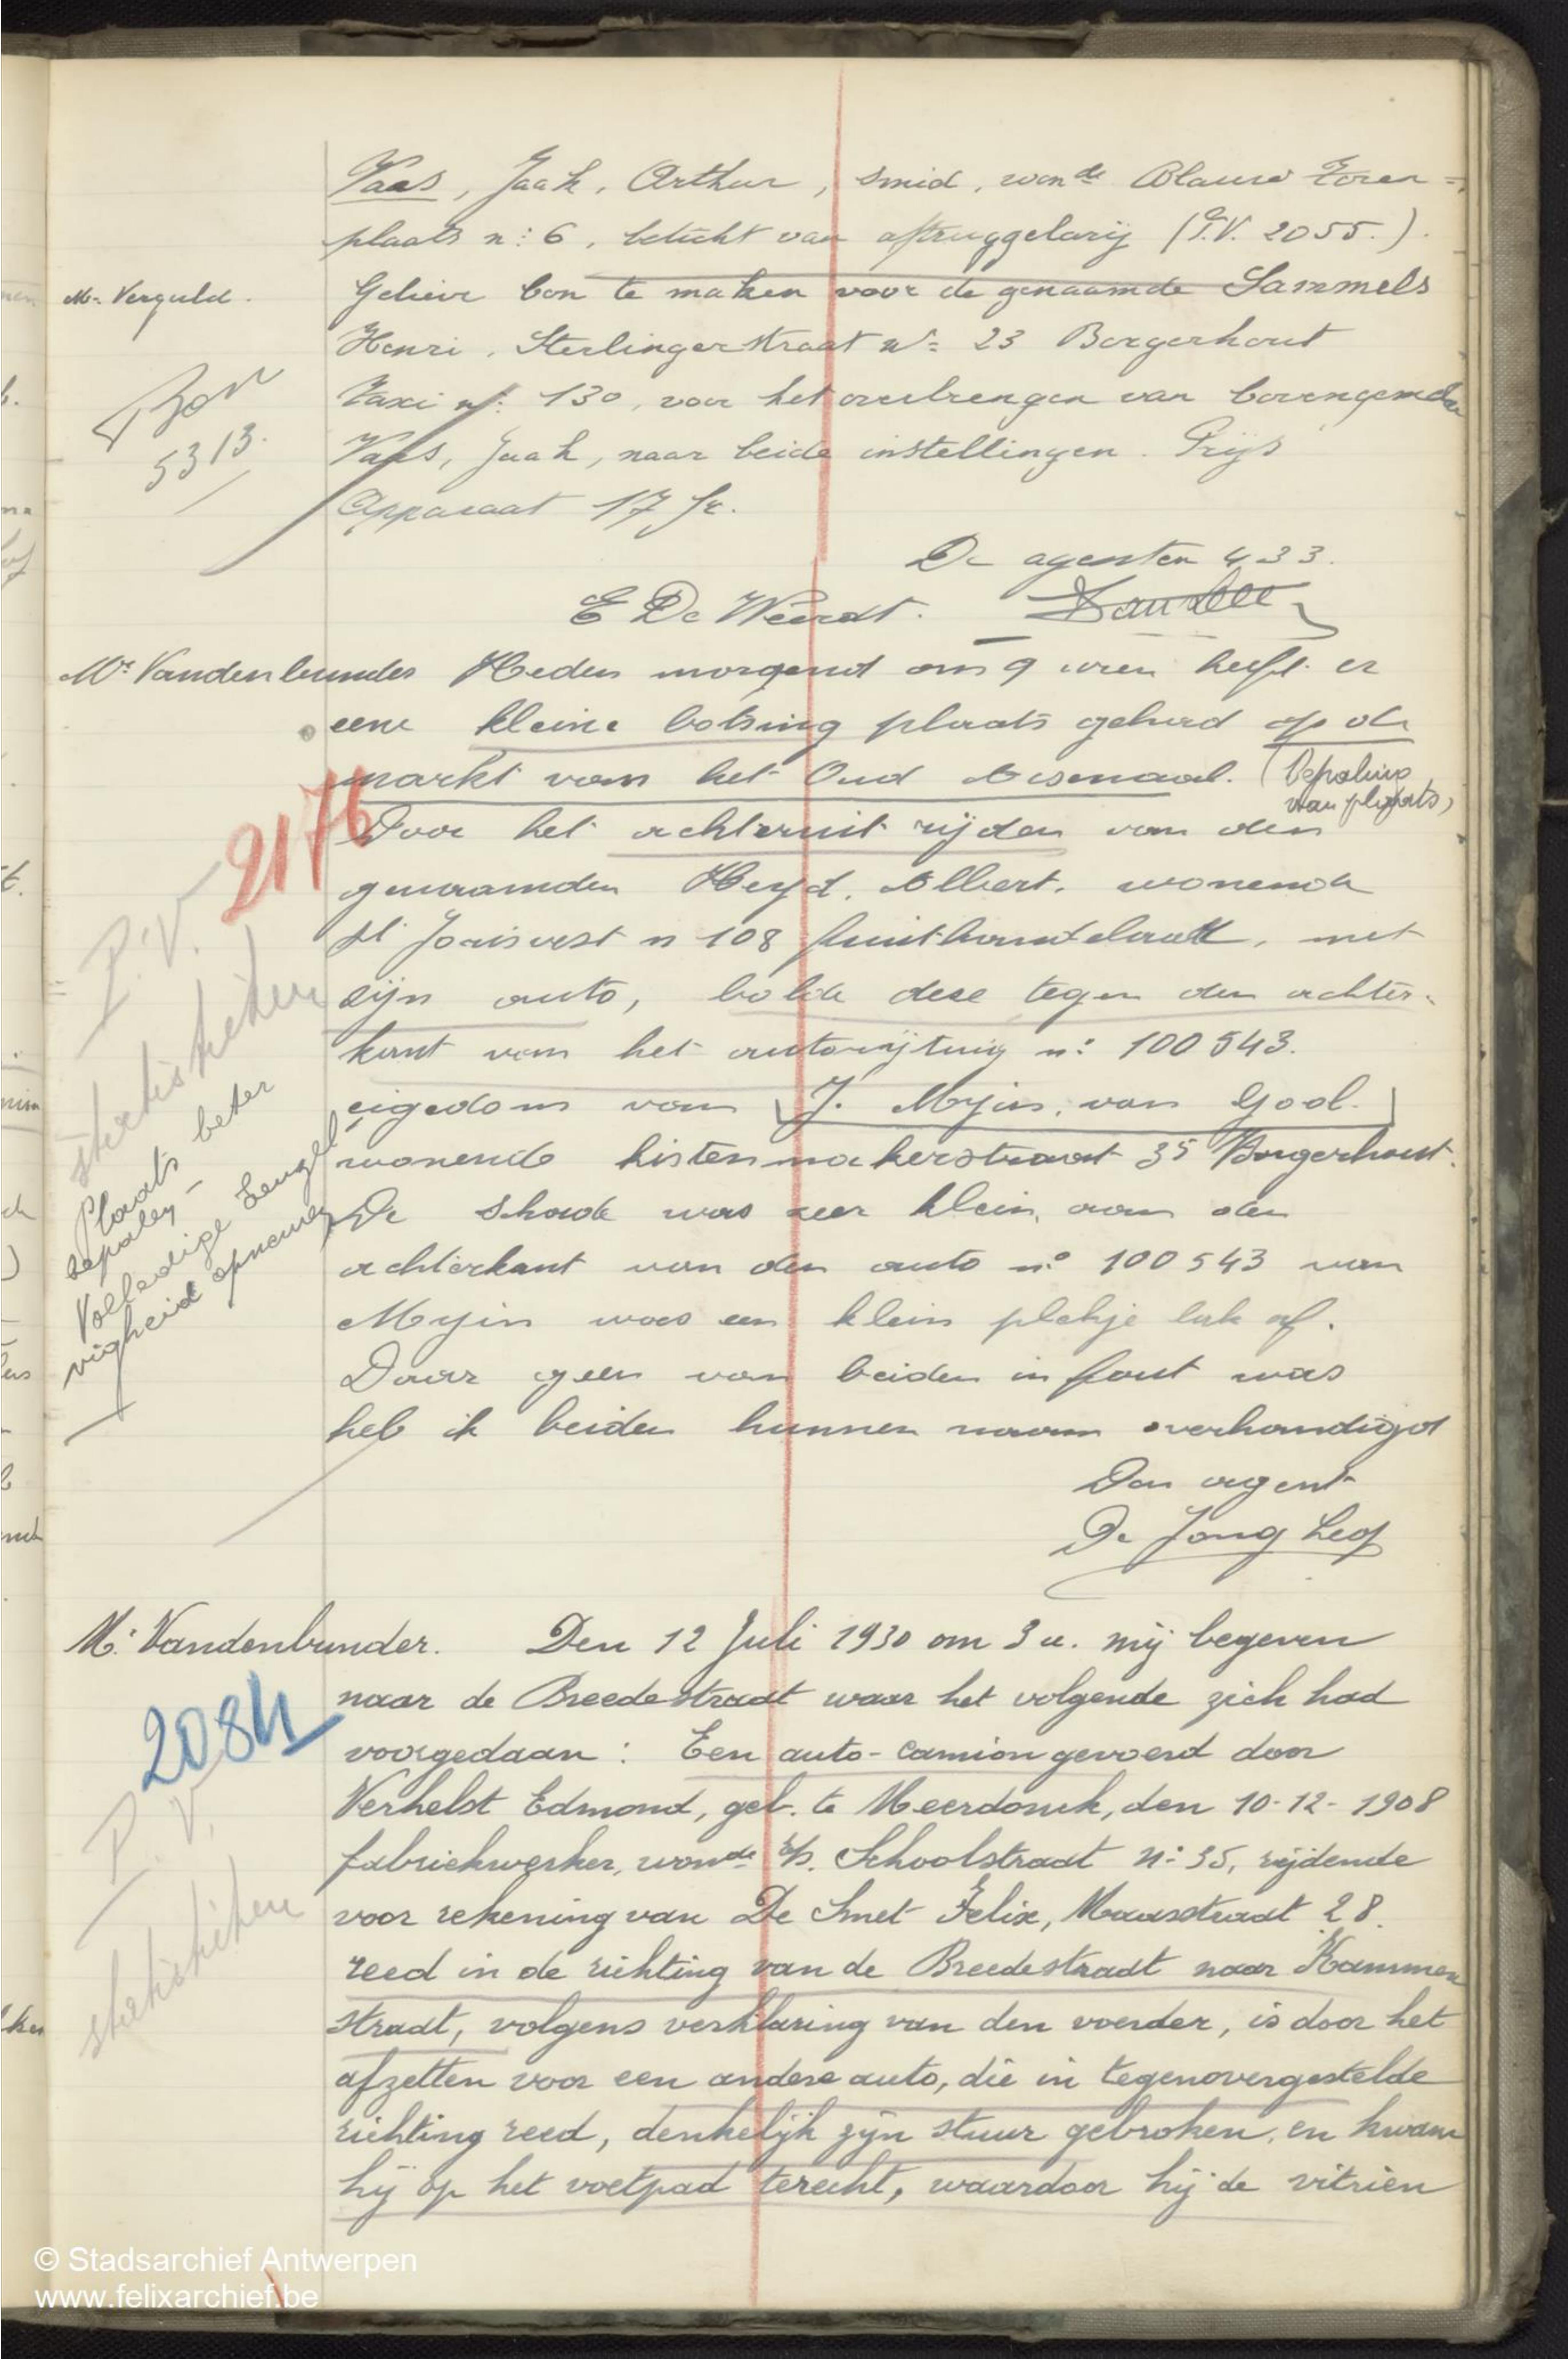 Vaes, Jaak, Arthur, smid, wonde Blauw Toren=
plaats n: 6, beticht van aftruggelarij (P.V. 2055.)
Mr Verguld.
Gelieve bon te maken voor de genaamde Sammels
Henri, Sterlingerstraat No 23 Borgerhout
Taxi no: 130, voor het overbrengen van bovengemelde
Vaes, Jaak, naar beide instellingen. Prijs
Apparaat 17 fr.
Bon
5313.
De agenten 433.
E De Weerdt.
Mr Vandenbunder
Heden morgend om 9 uren heeft er
eene kleine botsing plaats gehad op de
markt van het Oud Arsenaal. (bepaling
van plaats)
Door het achteruit rijden van den
genaamden Heyd. Albert. wonende
St Jorisvest n 108 fruithandelaar, met
zijn auto, bolde deze tegen den achter-
kant van het autorijtuig n: 100543.
eigedom van J. Myin, van Gool.
wonende kistenmakerstraat 35 Borgerhout.
De schade was zeer klein, aan den
achterkant van den auto no 100543 van
Myin was een klein plekje lak af.
Daar geen van beiden in fout was
heb ik beiden hunnen naam overhandigd
Den agent
De Jong Leop
2176
P.V.
statistieken
Plaats beter
bepalen -
Volledige eenzel-
vigheid opnemen
M: Vandenbunder.
Den 12 Juli 1930 om 3 u. mij begeven
naar de Breedestraat waar het volgende zich had
voorgedaan: Een auto-camion gevoerd door
Verhelst Edmond, geb. te Meerdonck, den 10-12-1908
fabriekwerker, wonde t/s. Schoolstraat N: 35, rijdende
voor rekening van De Smet Felix, Maasstraat 28.
reed in de richting van de Breedestraat naar Kammen
straat, volgens verklaring van den voerder, is door het
afzetten voor een andere auto, die in tegenovergestelde
richting reed, denkelijk zijn stuur gebroken, en kwam
hij op het voetpad terecht, waardoor hij de vitrien
2084
P.V.
statistieken
© Stadsarchief Antwerpen
www.felixarchief.be